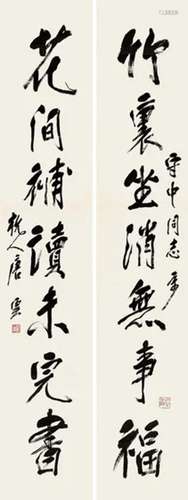 竹裏坐消無事福
守中同志属
花間補讀未完書
杭人唐雲